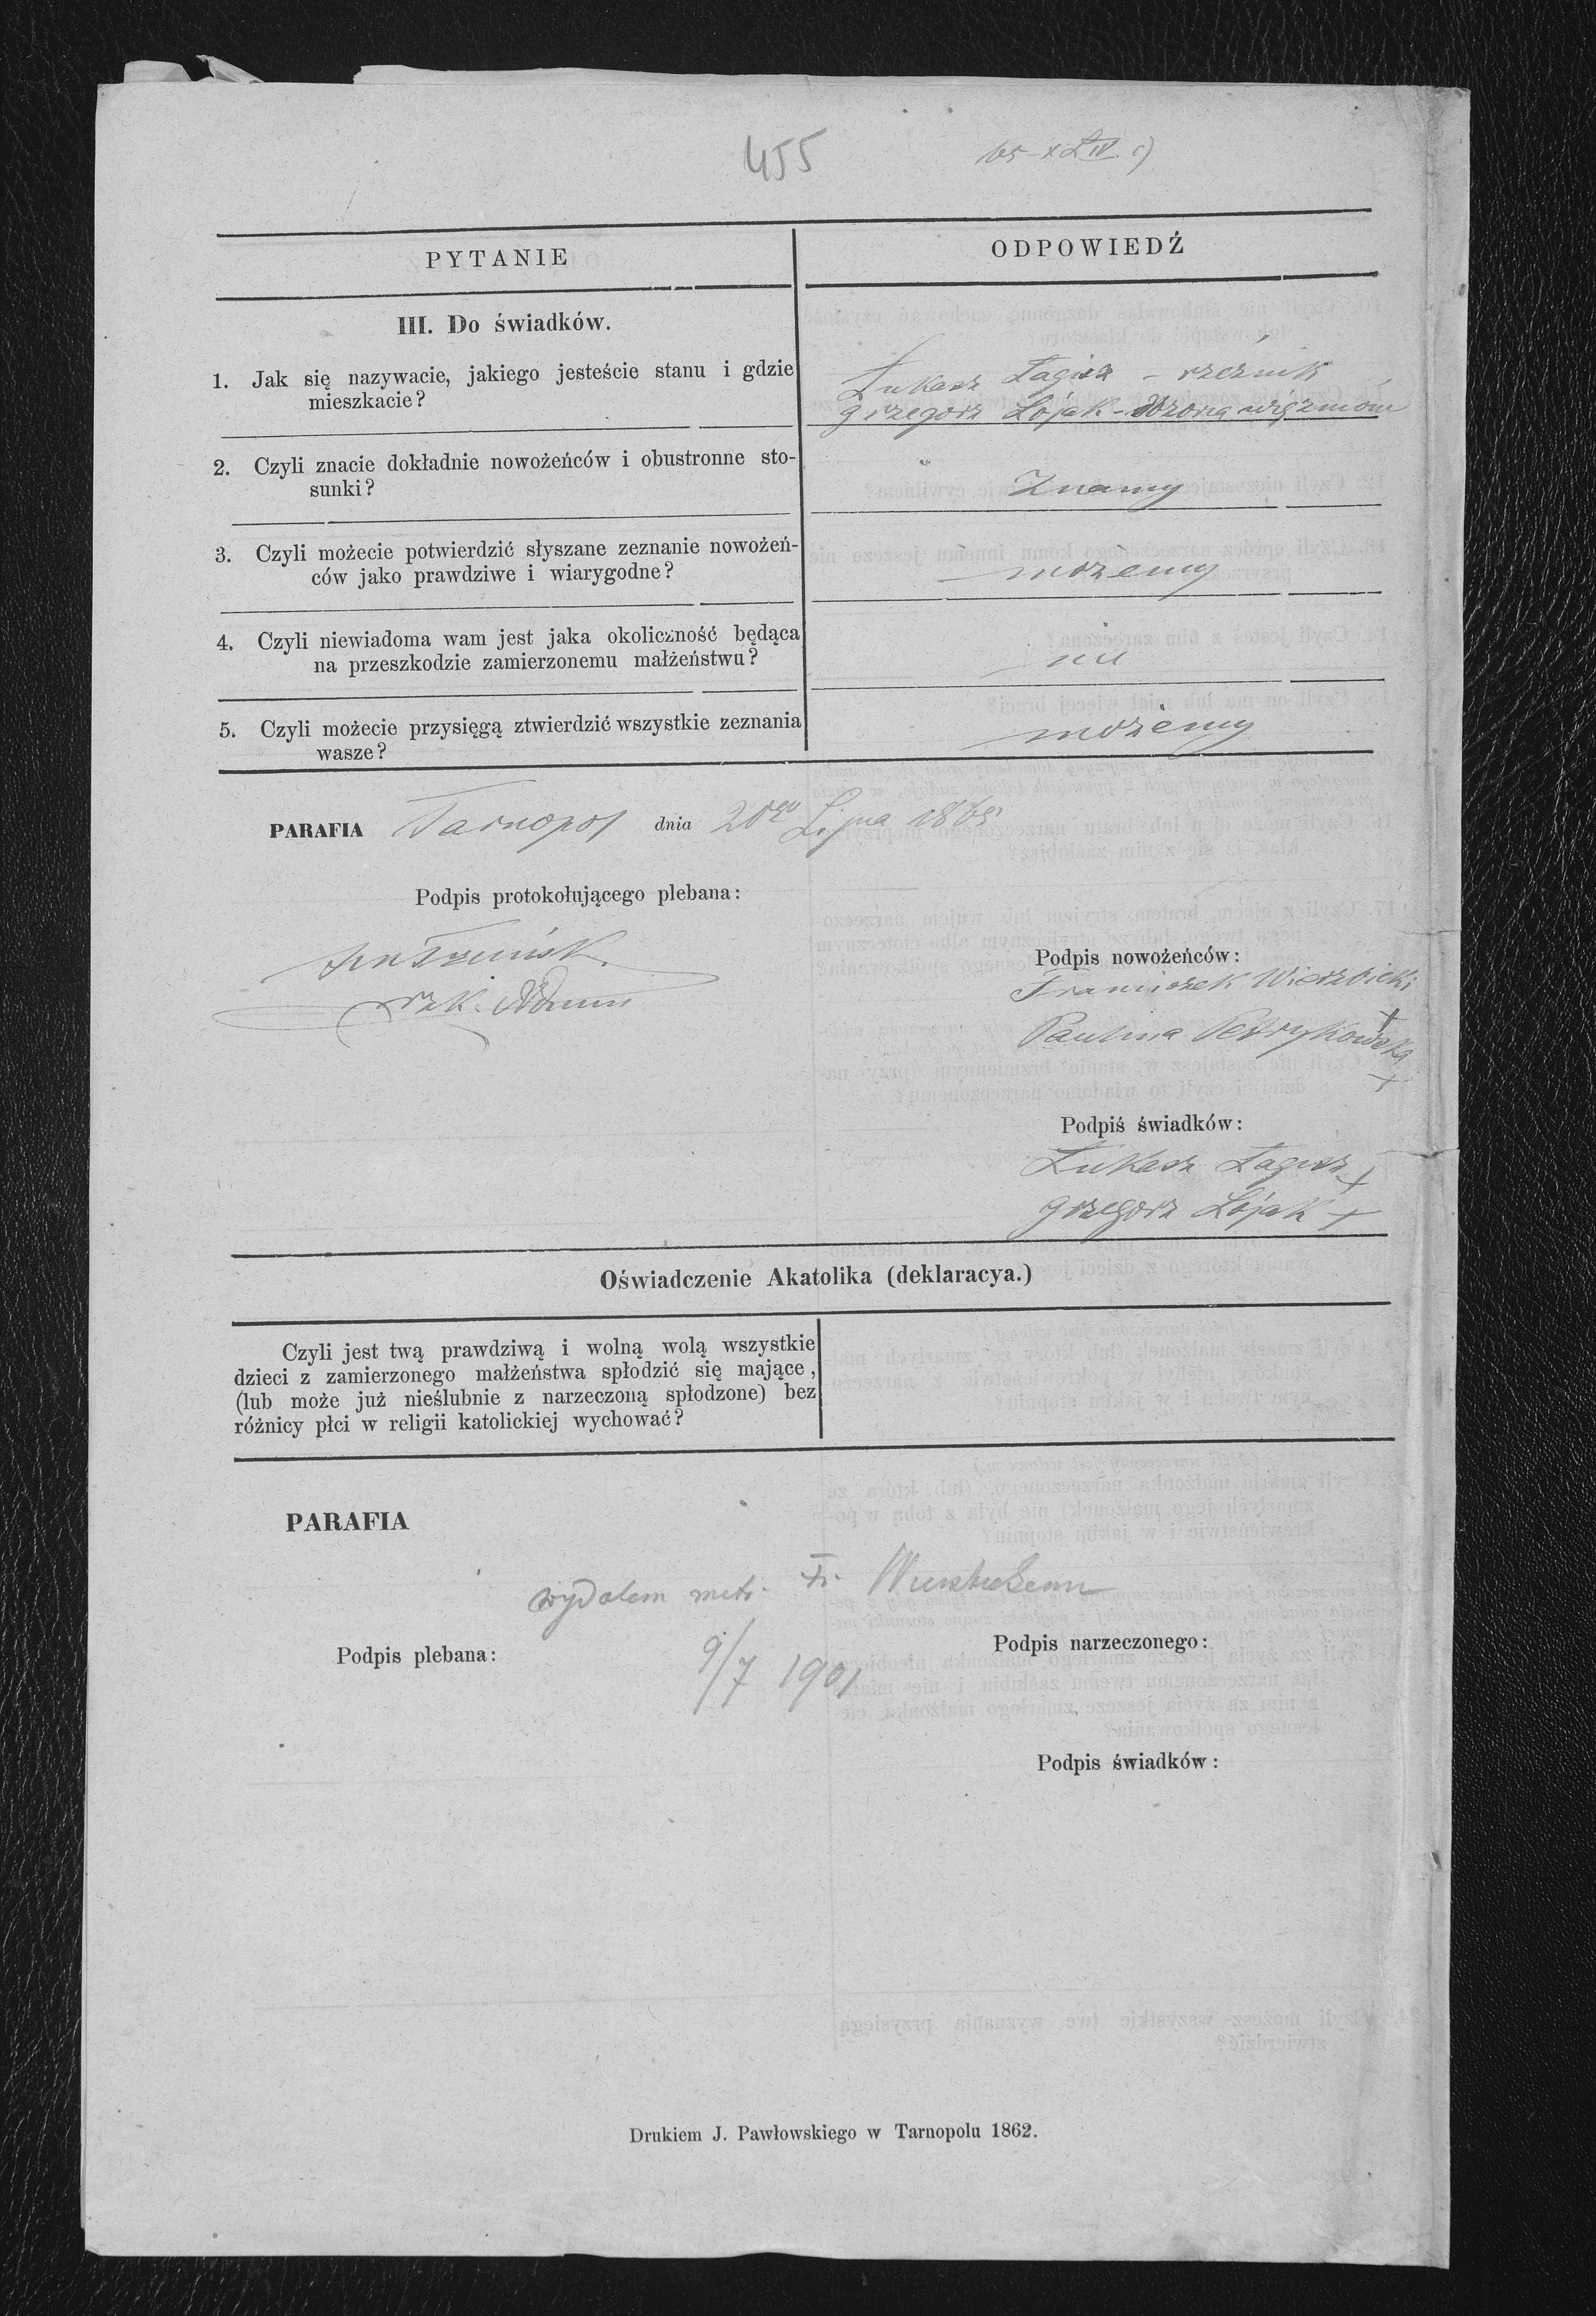 455
PYTANIE
ODPOWIEDŹ
III. Do świadków.
1. Jak się nazywacie, jakiego jesteście stanu i gdzie
mieszkacie?
Łukasz Łagisz - rzeźnik
Grzegorz Łojak - dozorca więzniów
2. Czyli znacie dokładnie nowożeńców i obustronne sto-
sunki?
Znamy
3. Czyli możecie potwierdzić słyszane zeznanie nowożeń-
ców jako prawdziwe i wiarygodne?
możemy
4. Czyli niewiadoma wam jest jaka okoliczność będąca
na przeszkodzie zamierzonemu małżeństwu?
nie
5. Czyli możecie przysięgą ztwierdzić wszystkie zeznania
wasze?
możemy
PARAFIA Tarnopol dnia Lipca 1865
Podpis protokołującego plebana:
Podpis nowożeńców:
Franciszek Wierzbicki
+
Paulina Petrykowska
+
Podpiś świadków:
Łukasz Łagisz +
Grzegorz Łojak +
Oświadczenie Akatolika (deklaracya.)
Czyli jest twą prawdziwą i wolną wolą wszystkie
dzieci z zamierzonego małżeństwa spłodzić się mające,
(lub może już nieślubnie z narzeczoną spłodzone) bez
różnicy płci w religii katolickiej wychować?
PARAFIA
wydałem metr.
Podpis plebana:
9/7 1901
Podpis narzeczonego:
Podpis świadków:
Drukiem J. Pawłowskiego w Tarnopolu 1862.